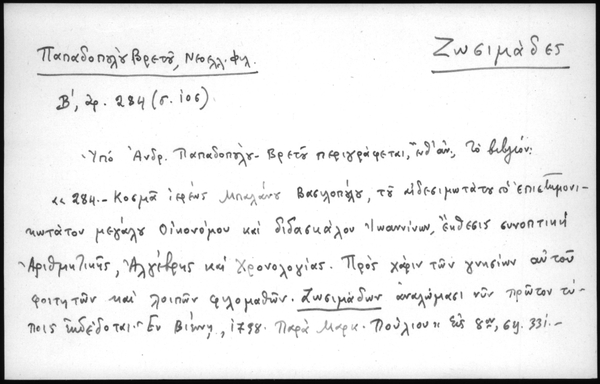 Ζωσιμάδες
Παπαδοπούλου Βρετοῦ, Νεοελλ. Φιλ.
Β', ἀρ. 284 (σ. 105)
Ὑπό Ἀνδρ. Παπαδοπούλου-Βρετοῦ περιγράφεται, τό βιβλίον:
«284.- Κοσμᾶ ἱερέως Μπαλάνου Βασιλοπούλου, τοῦ αἰδεσιμωτάτου καί ἐπιστημονι-
κωτάτου μεγάλου Οἰκονόμου καί διδασκάλου Ἰωαννίνων, ἔκθεσις συνοπτική
Ἀριθμητικῆς, Ἀλγέβρης καί Χρονολογίας. Πρός χάριν τῶν γνησίων αὐτοῦ
φοιτητῶν καί λοιπῶν φιλομαθῶν. Ζωσιμάδων ἀναλώμασι νῦν πρῶτον τύ-
ποις ἐκδέδοται. Ἐν Βιέννῃ, 1798. Παρά Μαρκ. Πούλιου» εἰς 8ον, σελ. 331.-